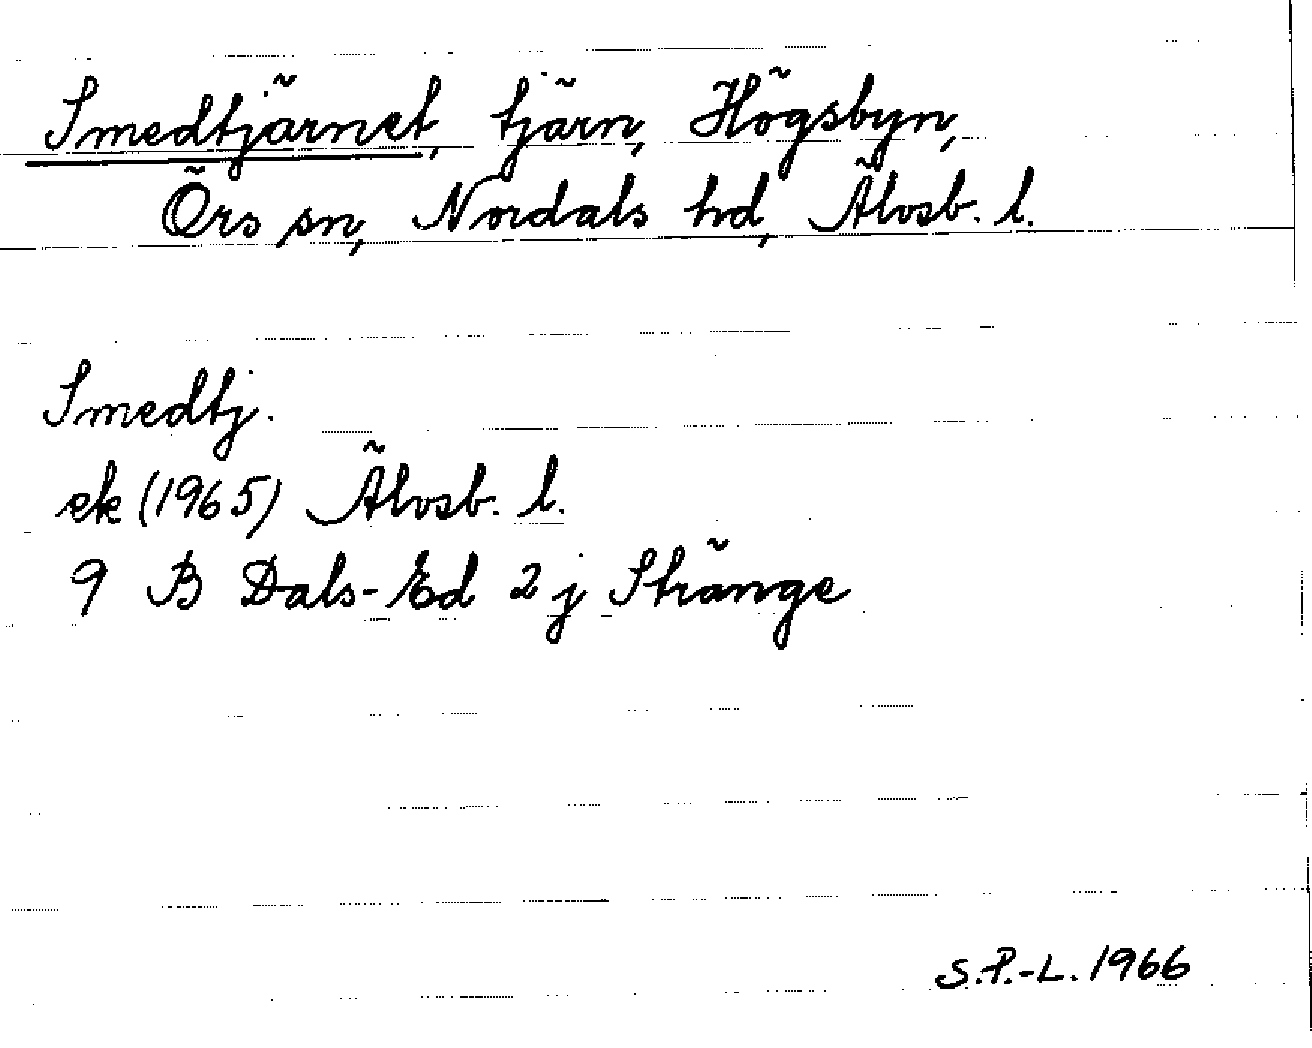 Smedtjärnet, tjärn, Högsbyn,
Örs sn, Nordals hd, Älvsb. l.
Smedtj.
ek (1965) Älvsb. l.
9 B Dals-Ed 2 j Stränge
S.P.-L. 1966